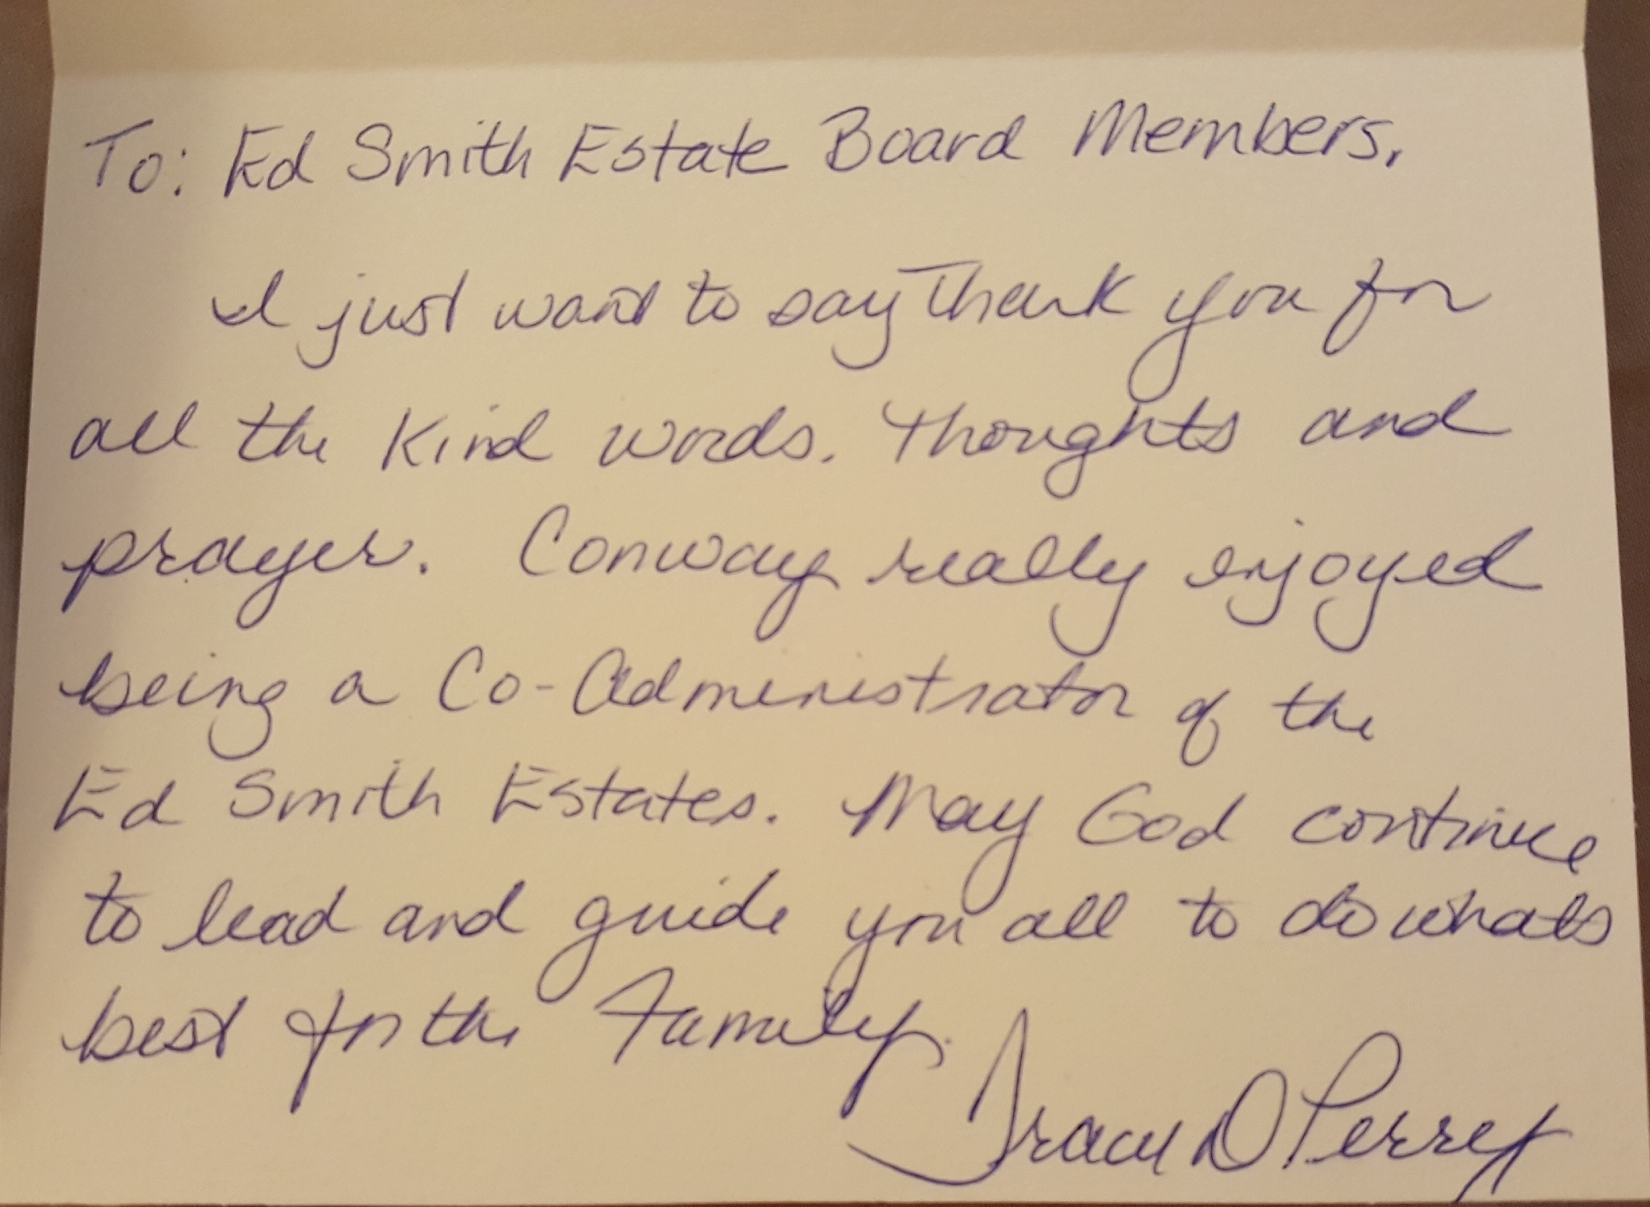 To: Ed Smith Estate Board Members,
I just want to say Thank you for
all the Kind words. Thoughts and
prayer. Conway really enjoyed
being a Co-Administrator of the
Ed Smith Estates. May God continue
to lead and guide you all to do whats
best for the Family.
Tracy D Perrey